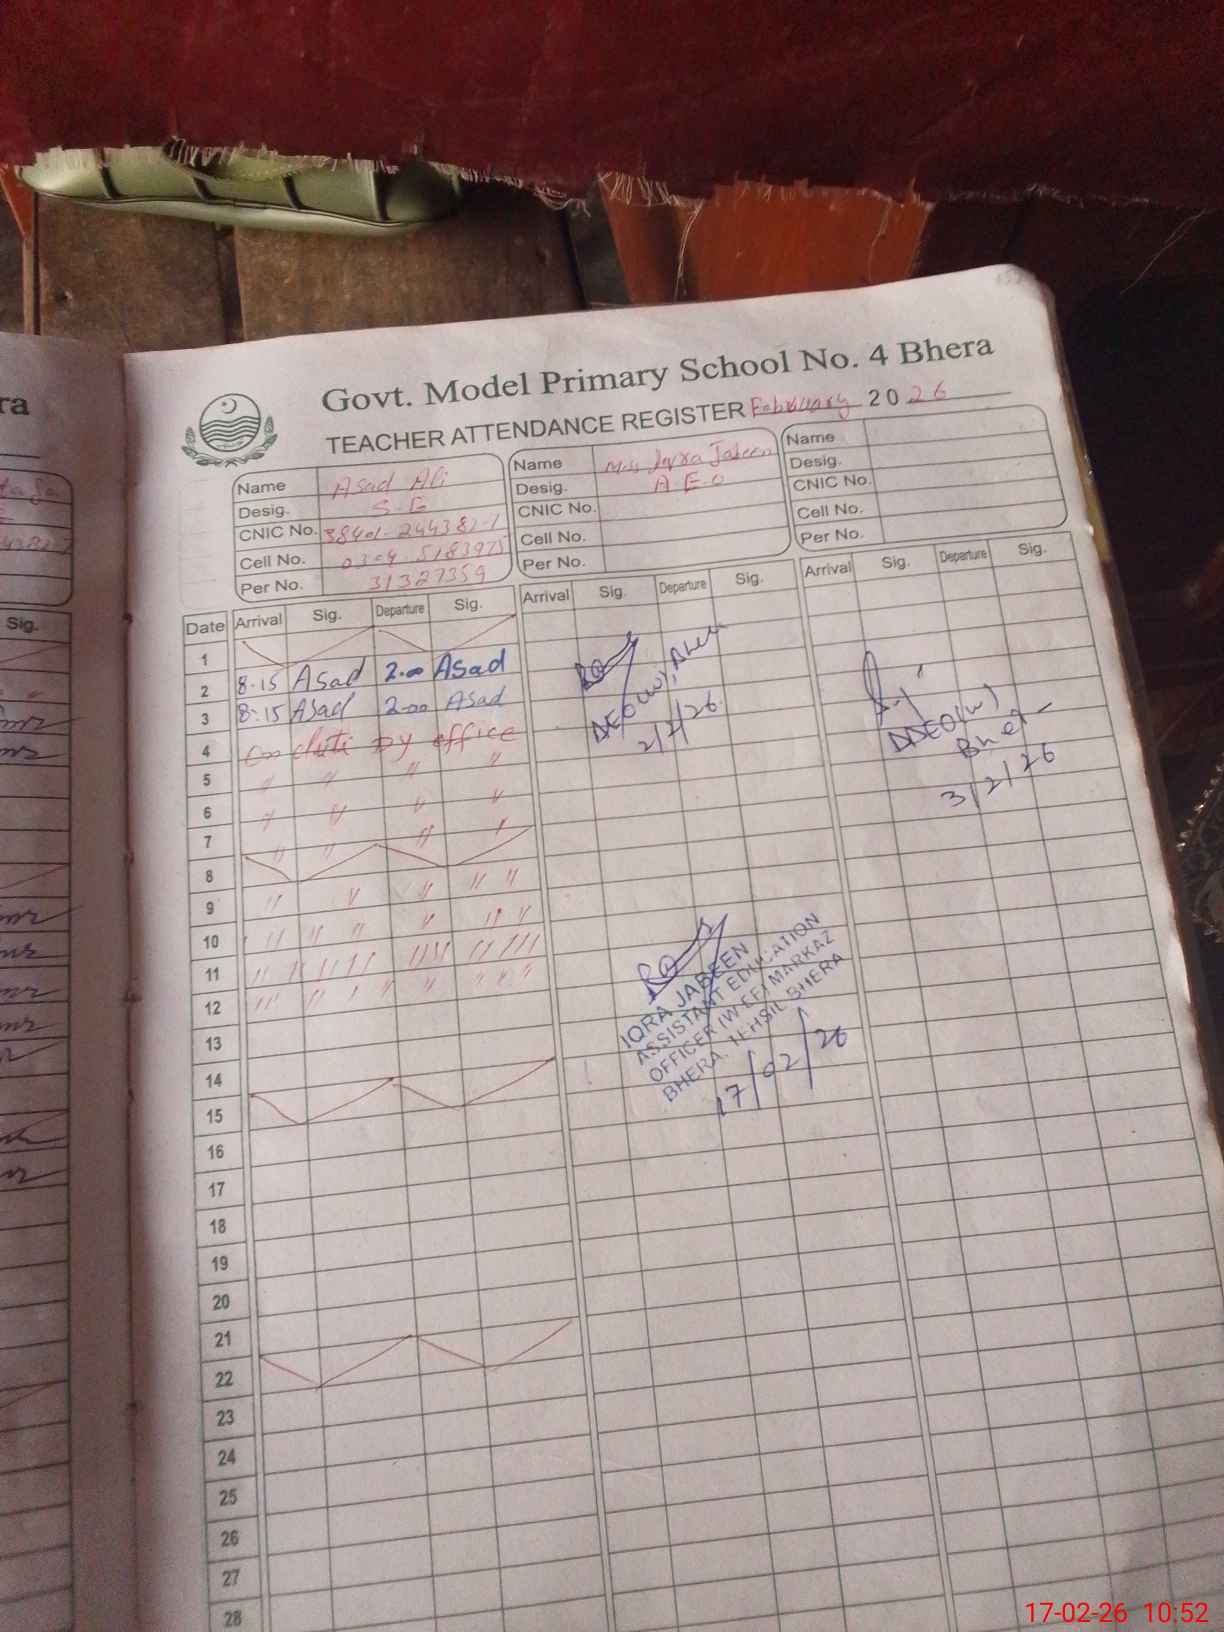 ra
Sig.
Govt. Model Primary School No. 4 Bhera
TEACHER ATTENDANCE REGISTER February 2026
Name Asad Ali
Desig. S.E
CNIC No.
Cell No. 0304-5183975
Per No. 31327359
Name Miss Iqra Jabeen
Desig. A.E.O
CNIC No.
Cell No.
Per No.
Name
Desig.
CNIC No.
Cell No.
Per No.
Date Arrival Sig. Departure Sig. Arrival Sig. Departure Sig. Arrival Sig. Departure Sig.
1
2 8-15 Asad 2.00 Asad
3 8-15 Asad 2.00 Asad
4 on duti by office
5 " " " "
6 " " " "
7 " " " "
8
9 " " " " "
10 " " " " " "
11
12
13
14
15
16
17
18
19
20
21
22
23
24
25
26
27
28
2/2/26
DDEO(W)
3/2/26
IQRA JABEEN
ASSISTANT EDUCATION
OFFICER (W-EE) MARKAZ
BHERA. TEHSIL BHERA
17/02/26
17-02-26 10:52